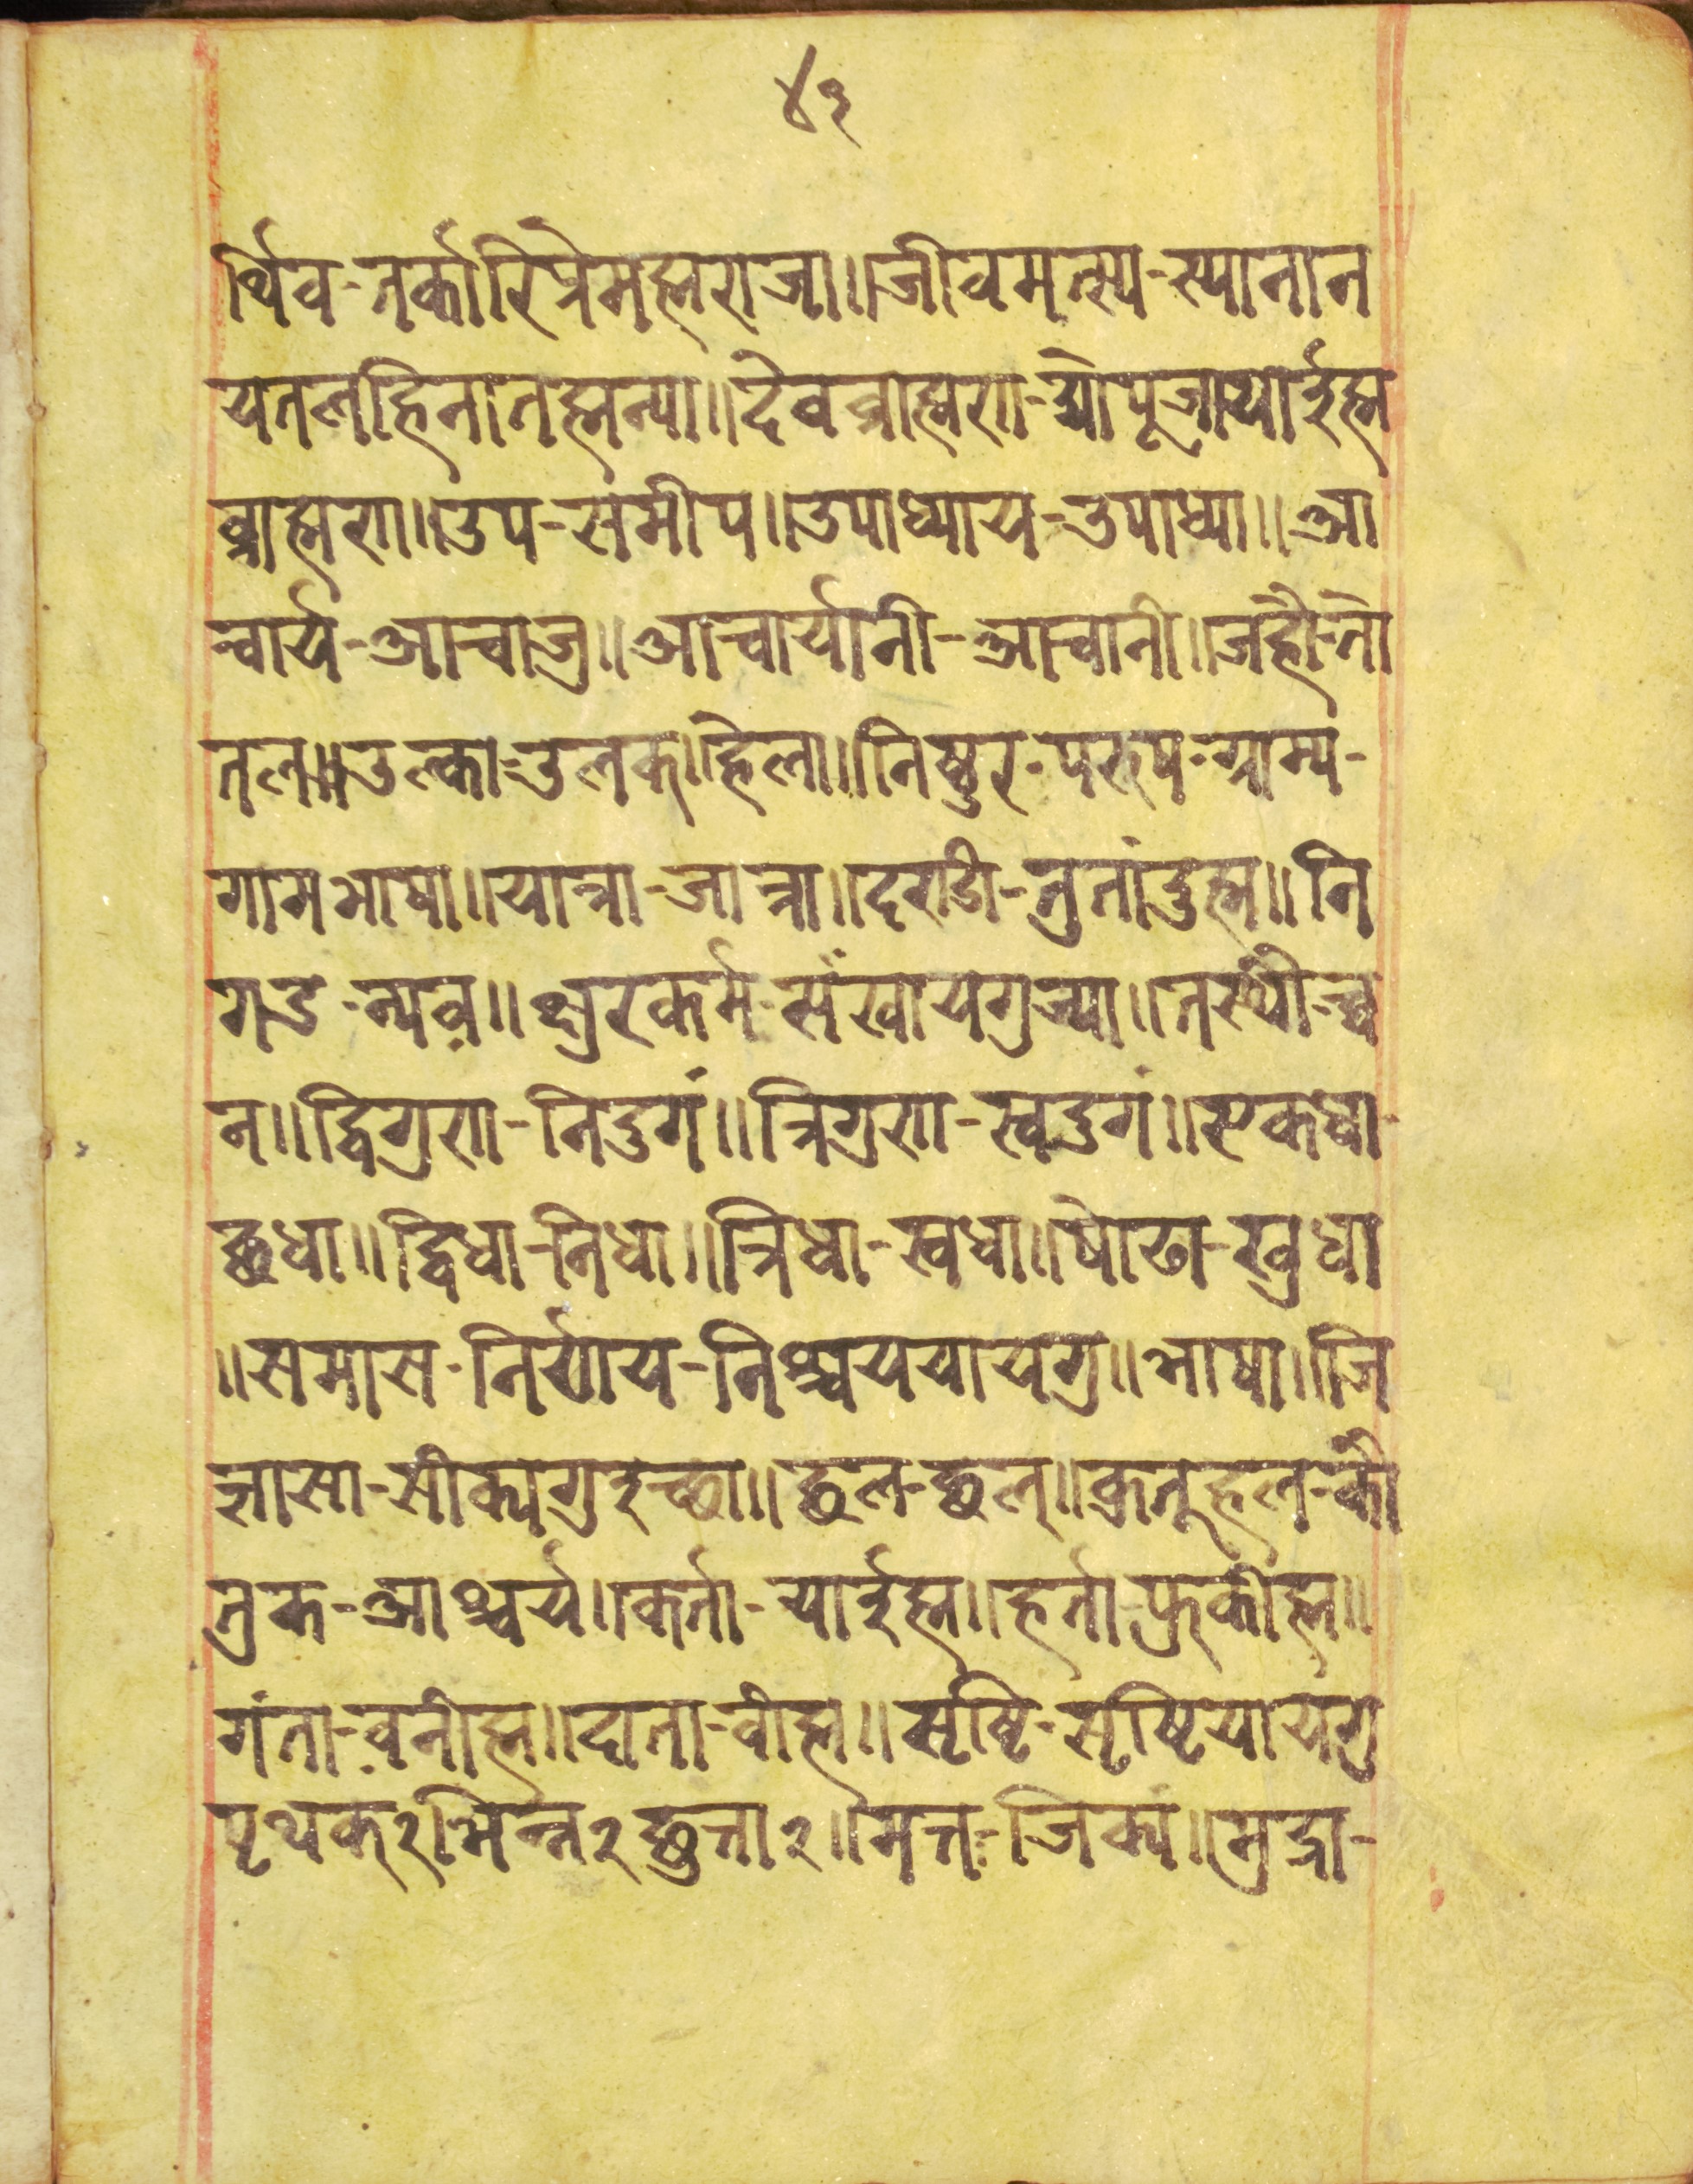 ४१
र्थिव-तर्कारिपेमह्मराजा॥जीवमत्स्य-स्यानान
यतलहिनातह्मन्या॥देवब्राह्मण-द्योपूजायार्इह्म
ब्राह्मण॥उप-समीप॥उपाध्याय-उपाध्या॥आ
चार्य-आचाजु॥आचार्यानी-आचानी॥जहौ-तो
तल॥उल्का-उलक्।हेला॥निष्ठुर-परुष-ग्राम्य-
गामभाषा॥यात्रा-जात्रा॥दण्डी-नुतांदुह्म॥नि
गड-न्यव॥क्षुरकर्म-संखायगुज्या॥तस्थौ-च्व
न॥द्विगुण-निदुगं॥त्रिगुण-स्वदुगं॥एकधा-
छधा॥द्विधा-निधा॥त्रिधा-स्वधा॥षोढा-खुधा
॥समास-निर्णय-निश्चययायगु॥भाषा॥जि
ज्ञासा-सीक्यगुइच्छा॥छल-छल्॥कुतूहल-कौ
तुक-आश्चर्य॥कर्ता-यार्इह्म॥हर्ता-फुकीह्म॥
गंता-वनीह्म॥दाता-वीह्म॥सृष्टि-सृष्टियायगु
पृथक्२भिन्न२छुत्ता२॥मत्त-जिक्य॥मुद्रा-